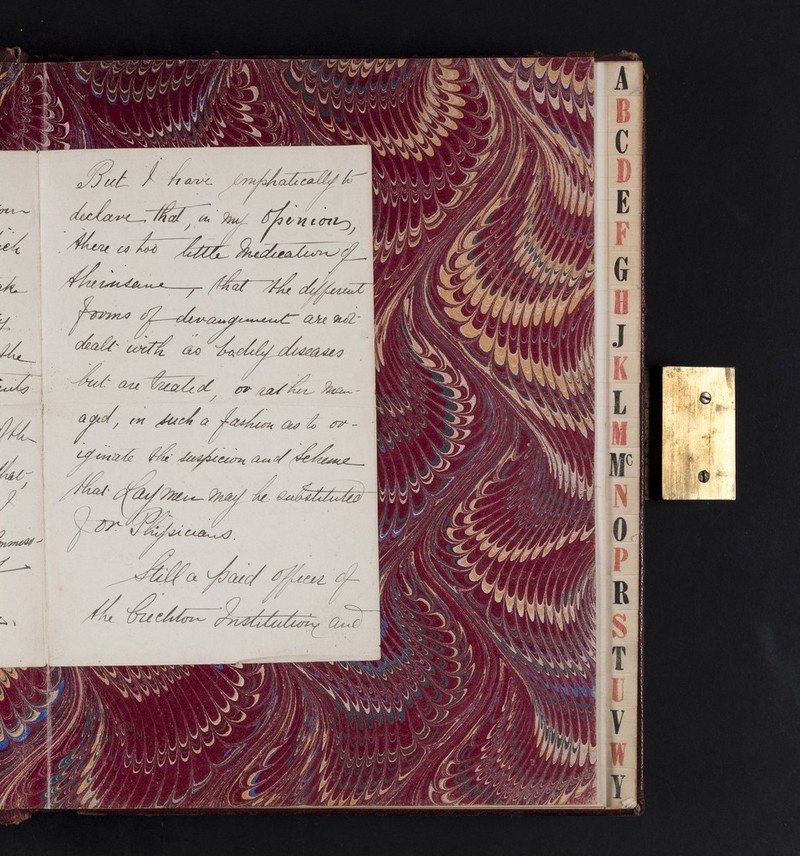 But I have emphatically to
declare, that, in my opinion,
there is too little medication of
the insane, that the different
forms of derangement are not
dealt with as bodily diseases
but are treated, or rather man-
aged, in such a fashion as to or-
iginate the suspicion and scheme
that Laymen may be substituted
for Physicians.
Still a paid officer of
the Crichton Institution, and
ich
ake
the
ents
that,
I
A
B
C
D
E
F
G
H
J
K
L
M
Mc
N
O
P
R
S
T
U
V
W
Y